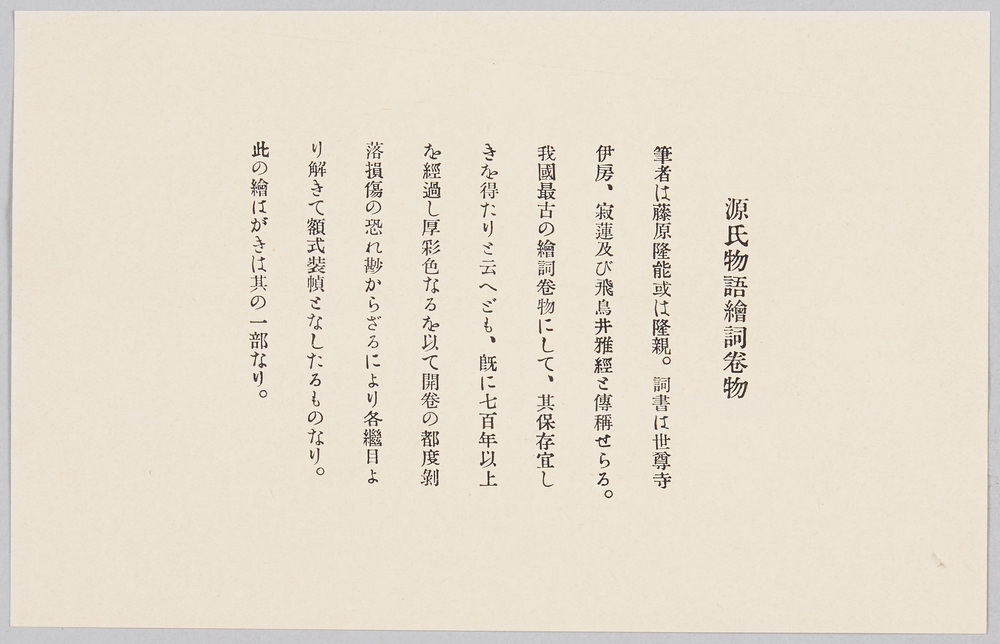 源氏物語繪詞卷物
筆者は藤原隆能或は隆親。詞書は世尊寺
伊房、寂蓮及び飛鳥井雅經と傳稱せらる。
我國最古の繪詞卷物にして、其保存宜し
きを得たりと云へども、既に七百年以上
を經過し厚彩色なるを以て開卷の都度剝
落損傷の恐れ尠からざるにより各繼目よ
り解きて額式裝幀となしたるものなり。
此の繪はがきは其の一部なり。